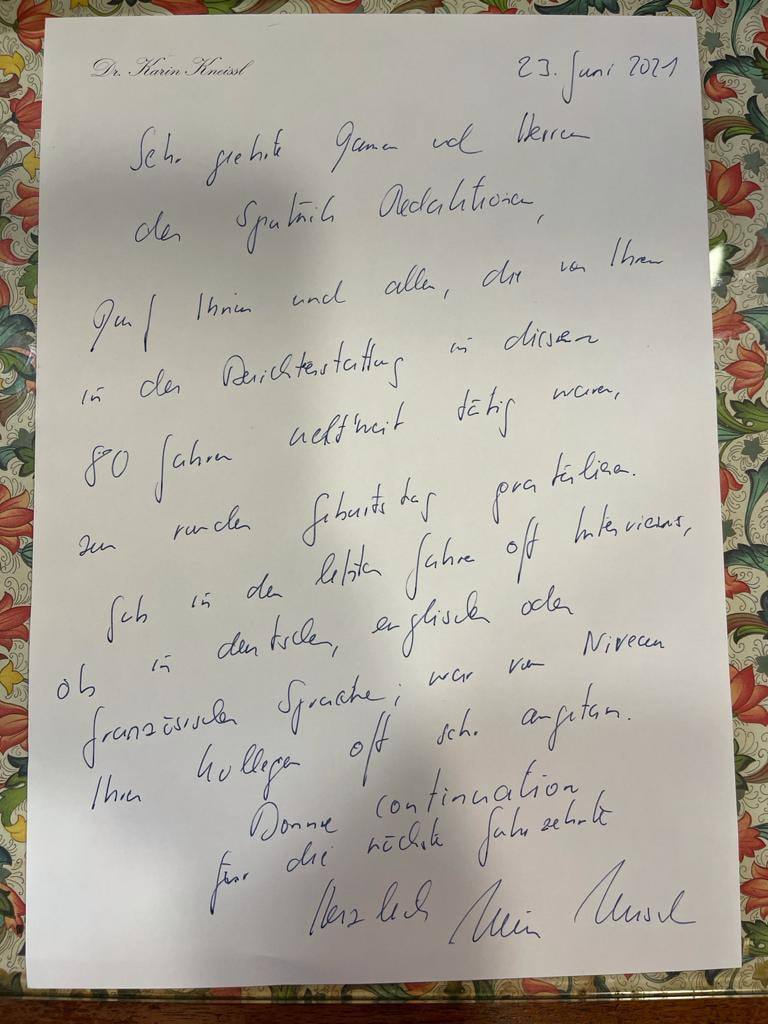 Dr. Karin Kneissl
23. Juni 2021
Sehr geehrte Damen und Herren
der Sputnik Redaktionen,
Darf Ihnen und allen, die von Ihnen
in der Berichterstattung in diesen
80 Jahren weltweit tätig waren,
zum runden Geburtstag gratulieren.
Gab in den letzten Jahren oft Interviews,
ob in deutscher, englischer oder
französischer Sprache; war vom Niveau
Ihrer Kollegen oft sehr angetan.
Bonne continuation
für die nächsten Jahrzehnte
Herzlich Karin Kneissl